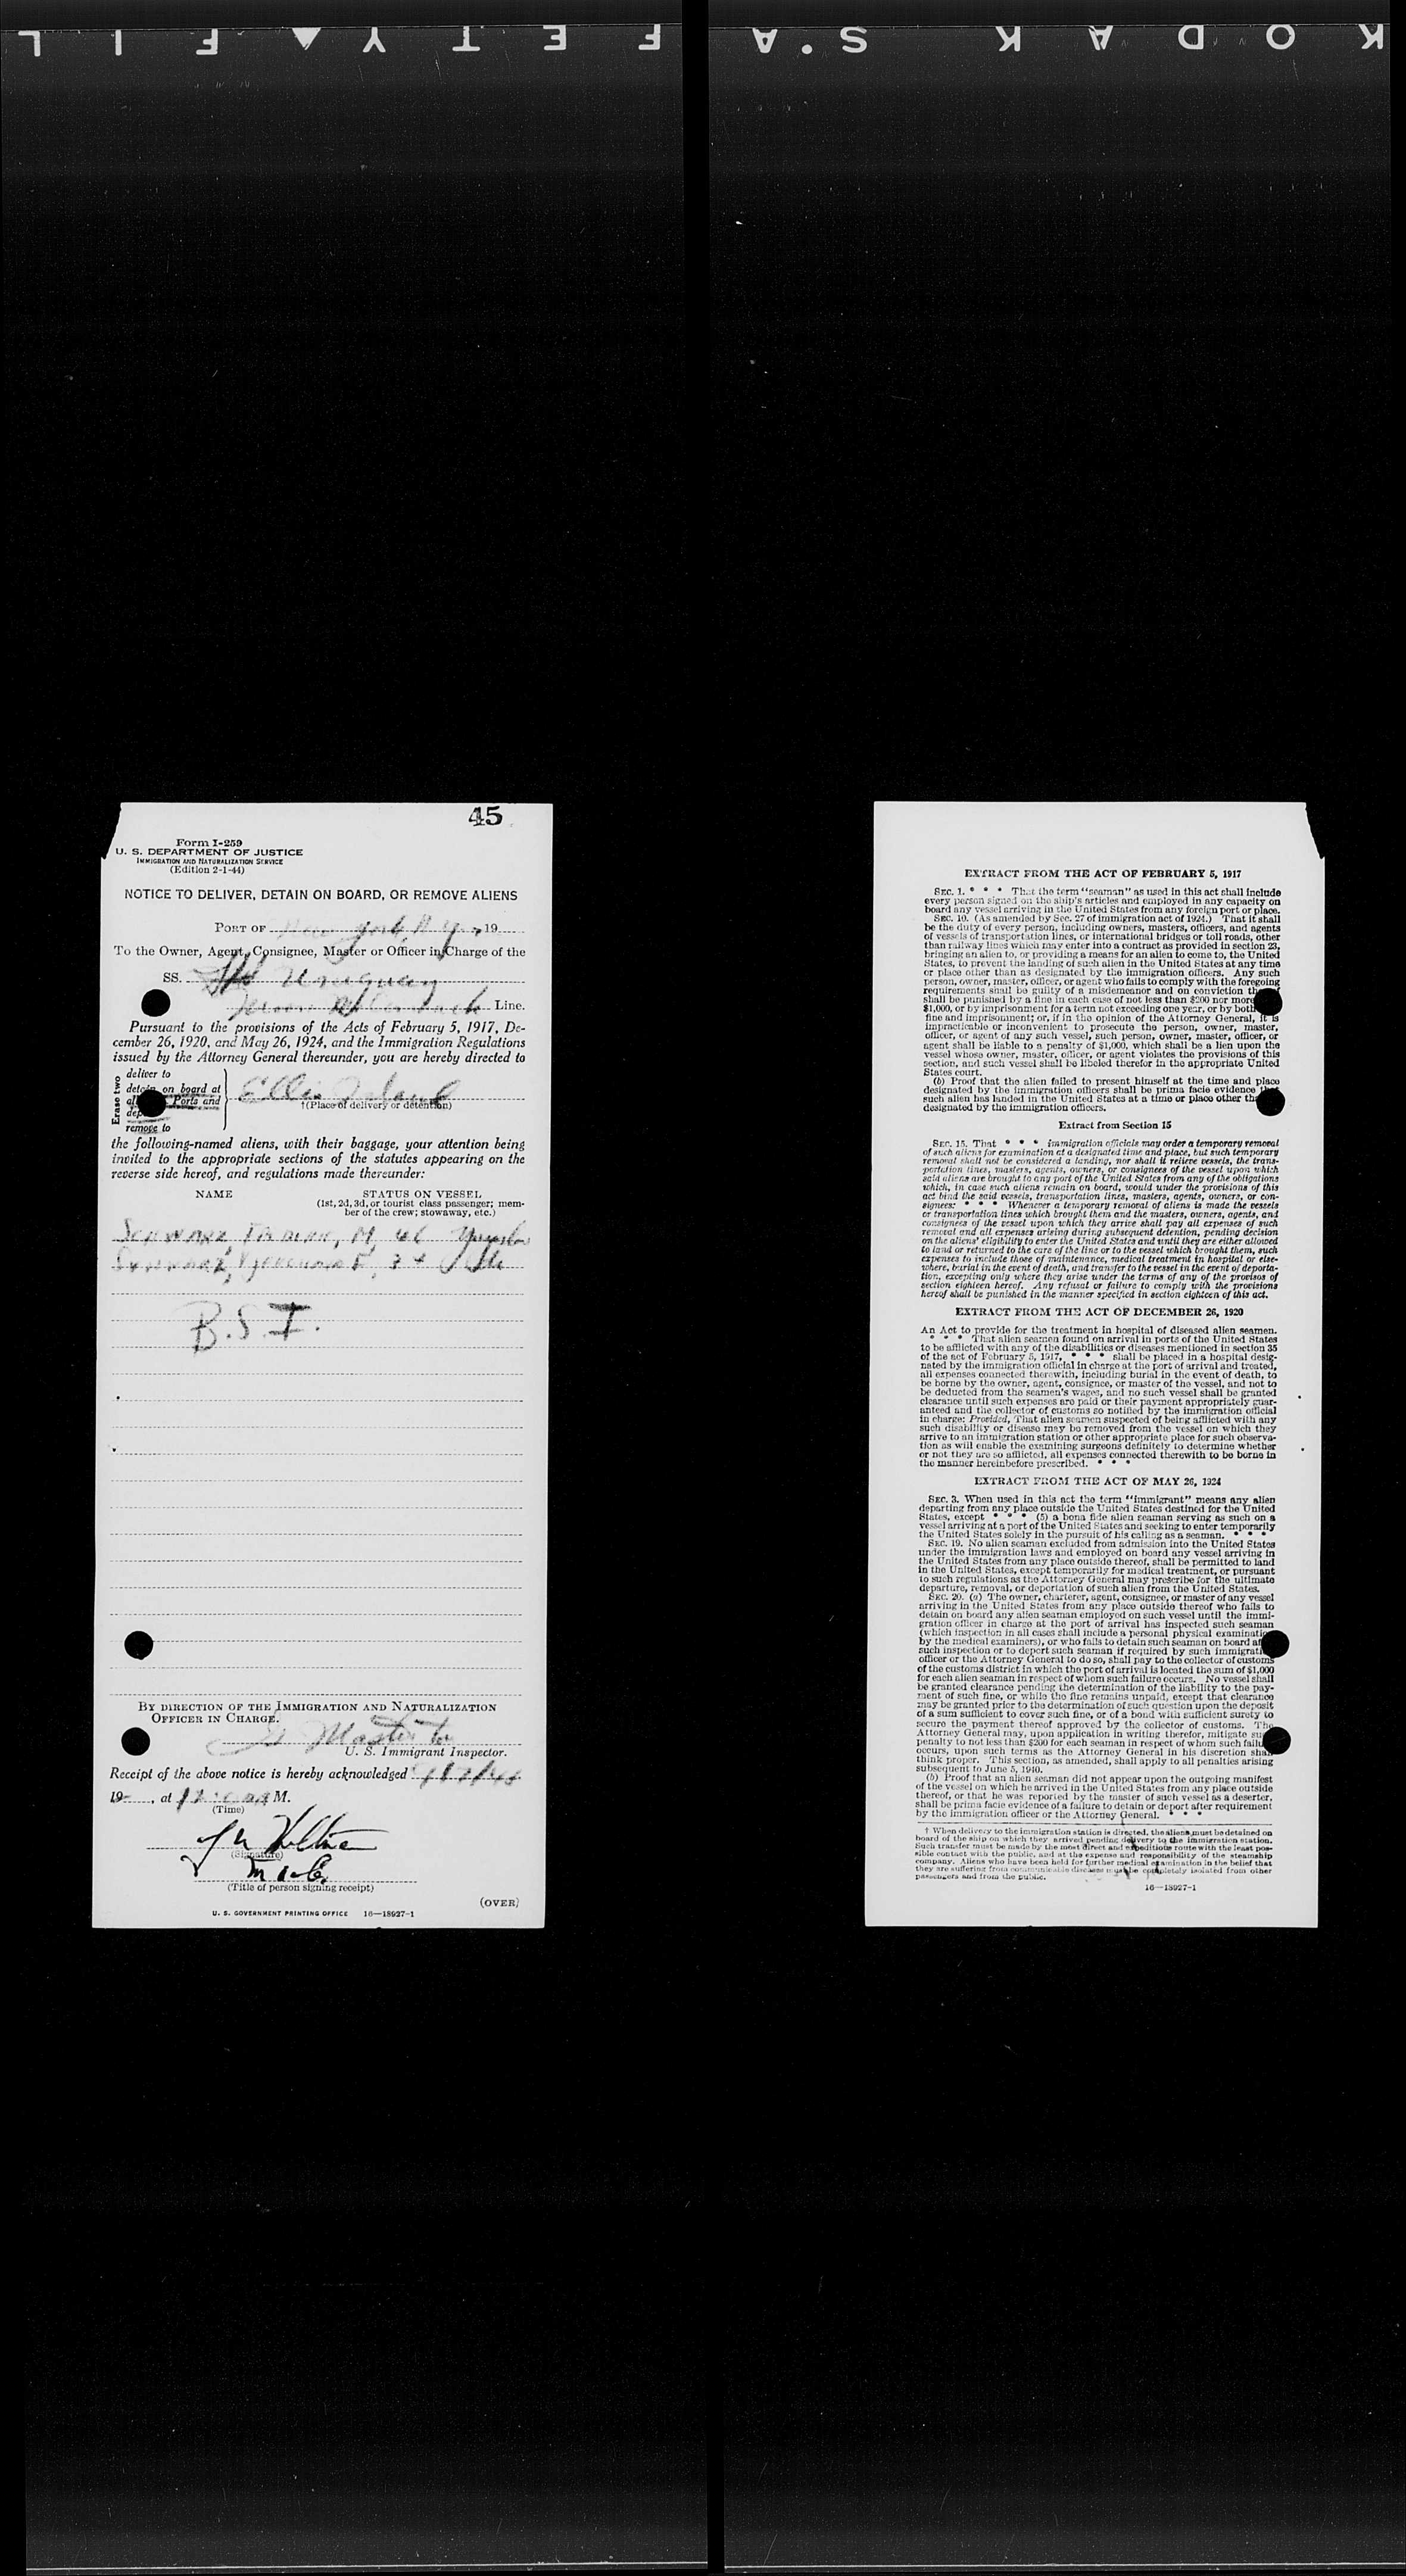 KODAK S.A
SAFETY FIL
45
Form I-259
U. S. DEPARTMENT OF JUSTICE
IMMIGRATION AND NATURALIZATION SERVICE
(Edition 2-1-44)
NOTICE TO DELIVER, DETAIN ON BOARD, OR REMOVE ALIENS
PORT OF New York, N. Y., 19
To the Owner, Agent, Consignee, Master or Officer in Charge of the
SS. Uruguay
Line.
Pursuant to the provisions of the Acts of February 5, 1917, De-
cember 26, 1920, and May 26, 1924, and the Immigration Regulations
issued by the Attorney General thereunder, you are hereby directed to
Erase two
deliver to
detain on board at
Ports and
remove to
Ellis Island
†(Place of delivery or detention)
the following-named aliens, with their baggage, your attention being
invited to the appropriate sections of the statutes appearing on the
reverse side hereof, and regulations made thereunder:
NAME
STATUS ON VESSEL
(1st, 2d, 3d, or tourist class passenger; mem-
ber of the crew; stowaway, etc.)
M, 46
B.S.I.
BY DIRECTION OF THE IMMIGRATION AND NATURALIZATION
OFFICER IN CHARGE.
U. S. Immigrant Inspector.
Receipt of the above notice is hereby acknowledged
19 , at M.
(Time)
(Signature)
(Title of person signing receipt)
(OVER)
U. S. GOVERNMENT PRINTING OFFICE 16—18927-1
EXTRACT FROM THE ACT OF FEBRUARY 5, 1917
SEC. 1. * * * That the term "seaman" as used in this act shall include
every person signed on the ship's articles and employed in any capacity on
board any vessel arriving in the United States from any foreign port or place.
SEC. 10. (As amended by Sec. 27 of immigration act of 1924.) That it shall
be the duty of every person, including owners, masters, officers, and agents
of vessels of transportation lines, or international bridges or toll roads, other
than railway lines which may enter into a contract as provided in section 23,
bringing an alien to, or providing a means for an alien to come to, the United
States, to prevent the landing of such alien in the United States at any time
or place other than as designated by the immigration officers. Any such
person, owner, master, officer, or agent who fails to comply with the foregoing
requirements shall be guilty of a misdemeanor and on conviction
shall be punished by a fine in each case of not less than $200 nor more
$1,000, or by imprisonment for a term not exceeding one year, or by both
fine and imprisonment; or, if in the opinion of the Attorney General, it is
impracticable or inconvenient to prosecute the person, owner, master,
officer, or agent of any such vessel, such person, owner, master, officer, or
agent shall be liable to a penalty of $1,000, which shall be a lien upon the
vessel whose owner, master, officer, or agent violates the provisions of this
section, and such vessel shall be libeled therefor in the appropriate United
States court.
(b) Proof that the alien failed to present himself at the time and place
designated by the immigration officers shall be prima facie evidence that
such alien has landed in the United States at a time or place other
designated by the immigration officers.
Extract from Section 15
SEC. 15. That * * * immigration officials may order a temporary removal
of such aliens for examination at a designated time and place, but such temporary
removal shall not be considered a landing, nor shall it relieve vessels, the trans-
portation lines, masters, agents, owners, or consignees of the vessel upon which
said aliens are brought to any port of the United States from any of the obligations
which, in case such aliens remain on board, would under the provisions of this
act bind the said vessels, transportation lines, masters, agents, owners, or con-
signees: * * * Whenever a temporary removal of aliens is made the vessels
or transportation lines which brought them and the masters, owners, agents, and
consignees of the vessel upon which they arrive shall pay all expenses of such
removal and all expenses arising during subsequent detention, pending decision
on the aliens' eligibility to enter the United States and until they are either allowed
to land or returned to the care of the line or to the vessel which brought them, such
expenses to include those of maintenance, medical treatment in hospital or else-
where, burial in the event of death, and transfer to the vessel in the event of deporta-
tion, excepting only where they arise under the terms of any of the provisos of
section eighteen hereof. Any refusal or failure to comply with the provisions
hereof shall be punished in the manner specified in section eighteen of this act.
EXTRACT FROM THE ACT OF DECEMBER 26, 1920
An Act to provide for the treatment in hospital of diseased alien seamen.
* * * That alien seamen found on arrival in ports of the United States
to be afflicted with any of the disabilities or diseases mentioned in section 35
of the act of February 5, 1917, * * * shall be placed in a hospital desig-
nated by the immigration official in charge at the port of arrival and treated,
all expenses connected therewith, including burial in the event of death, to
be borne by the owner, agent, consignee, or master of the vessel, and not to
be deducted from the seamen's wages, and no such vessel shall be granted
clearance until such expenses are paid or their payment appropriately guar-
anteed and the collector of customs so notified by the immigration official
in charge: Provided, That alien seamen suspected of being afflicted with any
such disability or disease may be removed from the vessel on which they
arrive to an immigration station or other appropriate place for such observa-
tion as will enable the examining surgeons definitely to determine whether
or not they are so afflicted, all expenses connected therewith to be borne in
the manner hereinbefore prescribed. * * *
EXTRACT FROM THE ACT OF MAY 26, 1924
SEC. 3. When used in this act the term "immigrant" means any alien
departing from any place outside the United States destined for the United
States, except * * * (5) a bona fide alien seaman serving as such on a
vessel arriving at a port of the United States and seeking to enter temporarily
the United States solely in the pursuit of his calling as a seaman. * * *
SEC. 19. No alien seaman excluded from admission into the United States
under the immigration laws and employed on board any vessel arriving in
the United States from any place outside thereof, shall be permitted to land
in the United States, except temporarily for medical treatment, or pursuant
to such regulations as the Attorney General may prescribe for the ultimate
departure, removal, or deportation of such alien from the United States.
SEC. 20. (a) The owner, charterer, agent, consignee, or master of any vessel
arriving in the United States from any place outside thereof who fails to
detain on board any alien seaman employed on such vessel until the immi-
gration officer in charge at the port of arrival has inspected such seaman
(which inspection in all cases shall include a personal physical examination
by the medical examiners), or who fails to detain such seaman on board
such inspection or to deport such seaman if required by such immigration
officer or the Attorney General to do so, shall pay to the collector of customs
of the customs district in which the port of arrival is located the sum of $1,000
for each alien seaman in respect of whom such failure occurs. No vessel shall
be granted clearance pending the determination of the liability to the pay-
ment of such fine, or while the fine remains unpaid, except that clearance
may be granted prior to the determination of such question upon the deposit
of a sum sufficient to cover such fine, or of a bond with sufficient surety to
secure the payment thereof approved by the collector of customs. The
Attorney General may, upon application in writing therefor, mitigate such
penalty to not less than $200 for each seaman in respect of whom such failure
occurs, upon such terms as the Attorney General in his discretion shall
think proper. This section, as amended, shall apply to all penalties arising
subsequent to June 5, 1940.
(b) Proof that an alien seaman did not appear upon the outgoing manifest
of the vessel on which he arrived in the United States from any place outside
thereof, or that he was reported by the master of such vessel as a deserter,
shall be prima facie evidence of a failure to detain or deport after requirement
by the immigration officer or the Attorney General. * * *
† When delivery to the immigration station is directed, the aliens must be detained on
board of the ship on which they arrived pending delivery to the immigration station.
Such transfer must be made by the most direct and expeditious route with the least pos-
sible contact with the public, and at the expense and responsibility of the steamship
company. Aliens who have been held for further medical examination in the belief that
they are suffering from communicable disease must be completely isolated from other
passengers and from the public.
16—18927-1